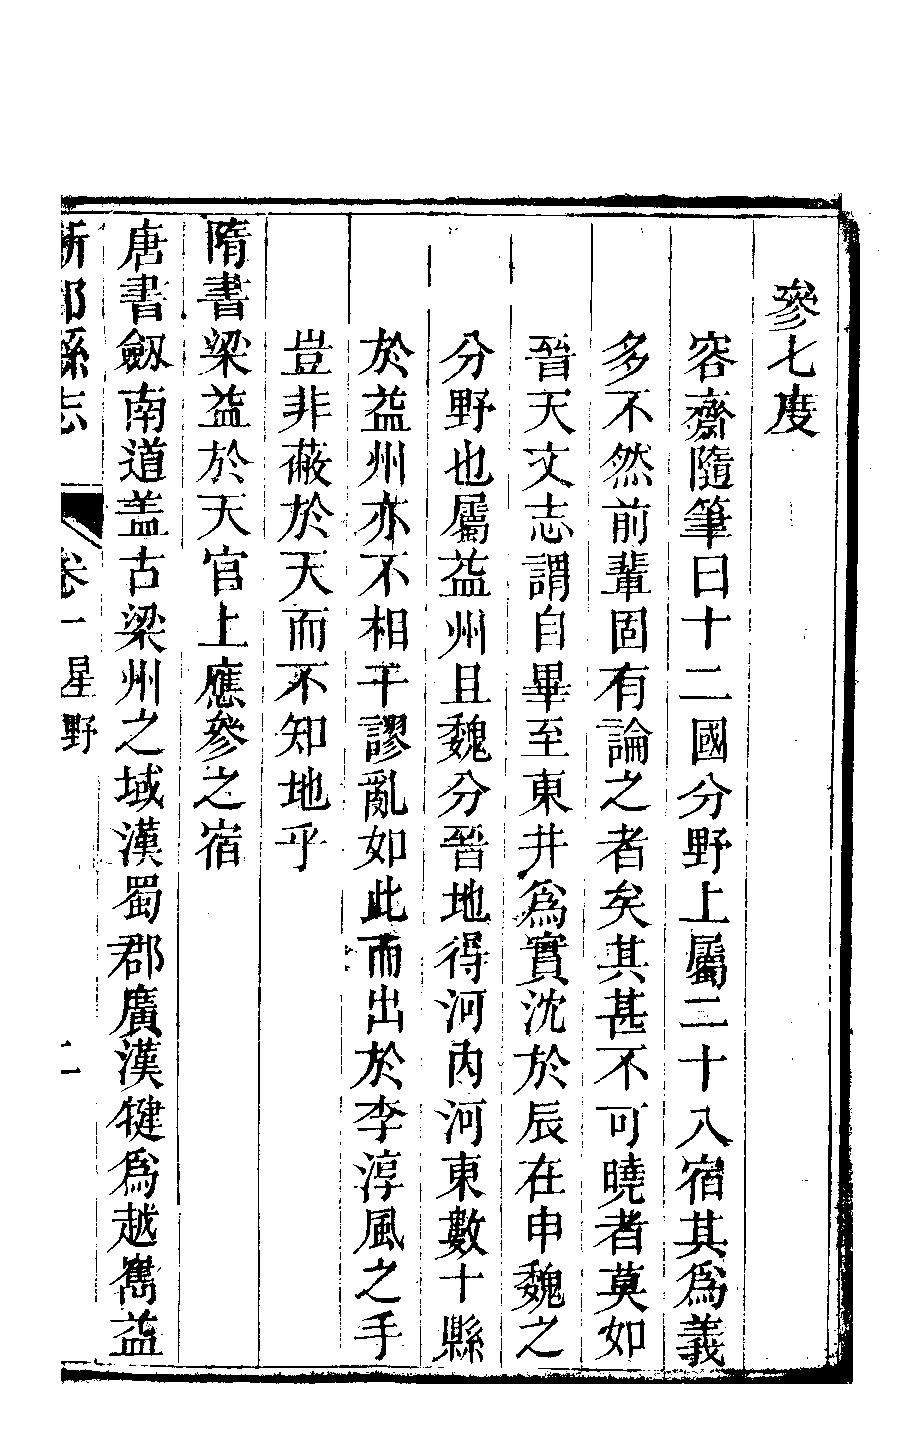 參七度
容齋隨筆曰十二國分野上屬二十八宿其爲義
多不然前輩固有論之者矣其甚不可曉者莫如
晉天文志謂自畢至東井爲實沈於辰在申魏之
分野也屬益州且魏分晉地得河內河東數十縣
於益州亦不相干謬亂如此而出於李淳風之手
豈非蔽於天而不知地乎
隋書梁益於天官上應參之宿
唐書劔南道盖古梁州之域漢蜀郡廣漢犍爲越嶲益
新都縣志 卷一星野 二